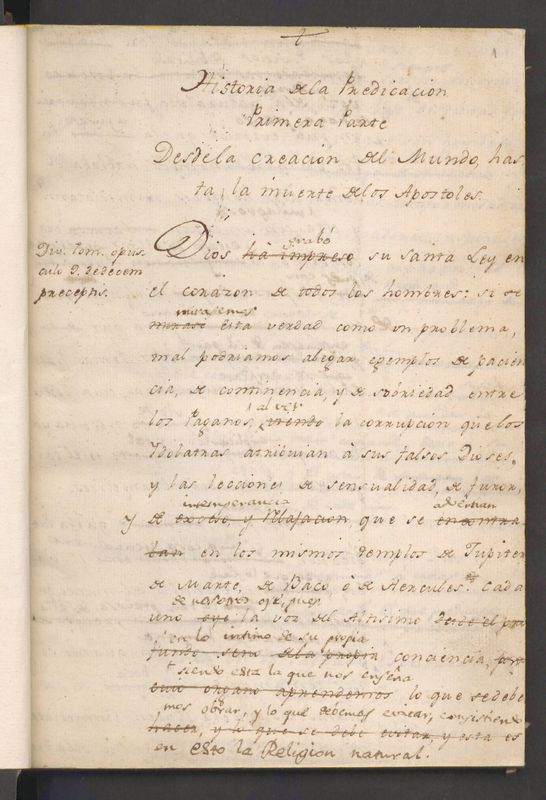 1
Historia de la Predicacion
Primera Parte
Desde la creacion del Mundo, has-
ta, la muerte de los Apostoles.
Div. Tom. opus-
culo
de decem
preceptis.
grabó
Dios ha impreso su santa Ley en
el corazon de todos los hombres: si se
mirasemos
mirase esta verdad como un problema,
mal podriamos alegar egemplos de pacien
cia, de continencia, y de sobriedad entre
al ver
los Paganos, viendo la corrupcion que los
Ydolatras atribuian à sus falsos Dioses,
y las lecciones de sensualidad, de furor,
intemperancia
advertian
y de exceso, y relajacion, que se encontra-
ban en los mismos templos de Jupiter
de Marte, de Baco ò de Hercules. Cada
de nosotros oye, pues
uno oye la voz del Altisimo desde el pro
en lo intimo de su propia
fundo seno de la propia conciencia,
siendo esta la que nos enseña
cuio organo aprendemos lo que se debe
mos obrar, y lo que debemos evitar, consistiendo
hacer, y lo que se debe evitar, y esta es
en esto la Religion natural.